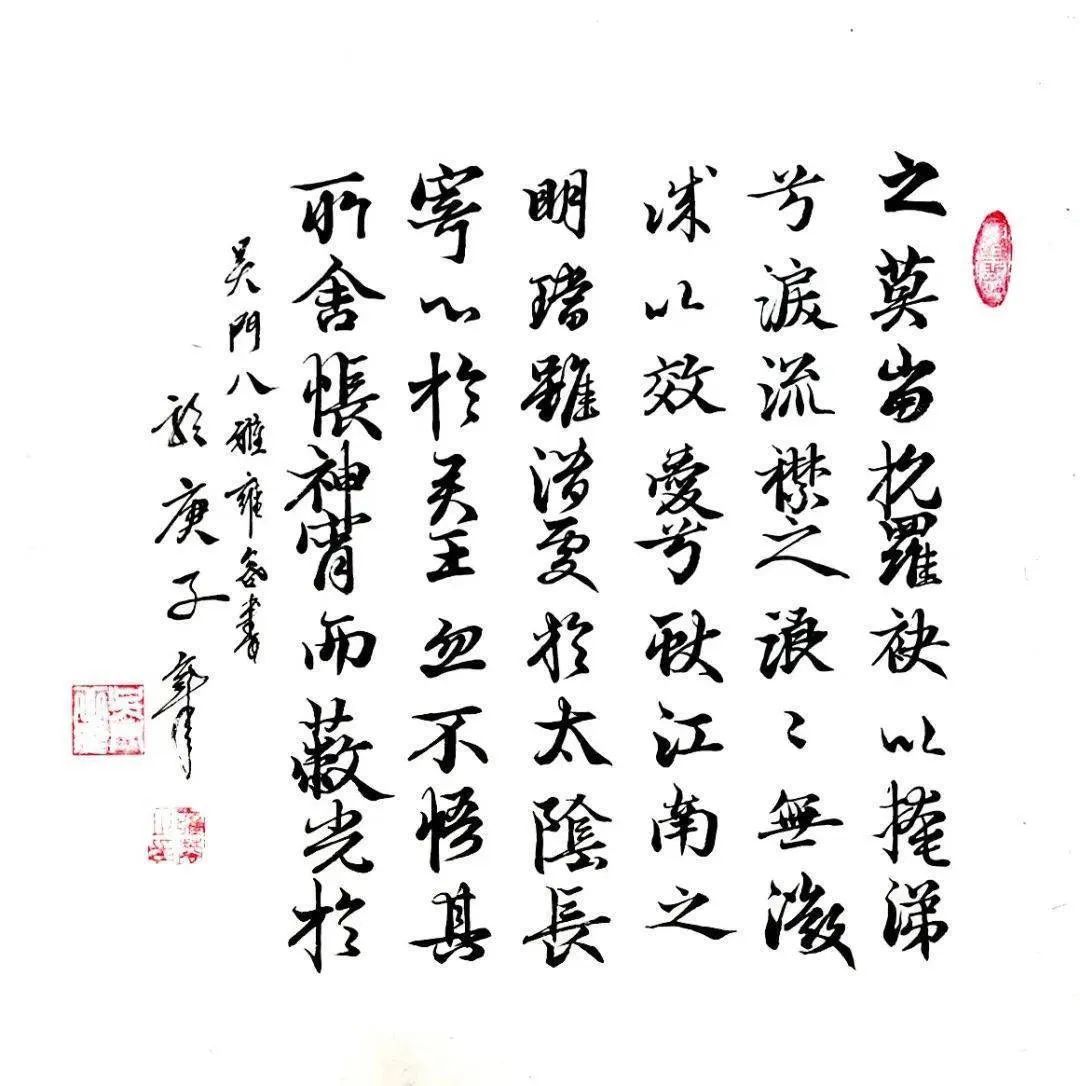 之莫當抗羅袂以掩涕
兮淚流襟之浪〻無微
以效愛兮獻江南之
明璫雖潛處於太陰長
寄心於君王忽不悟其
所舍悵神宵而蔽光於
吳門八雅書
於庚子月